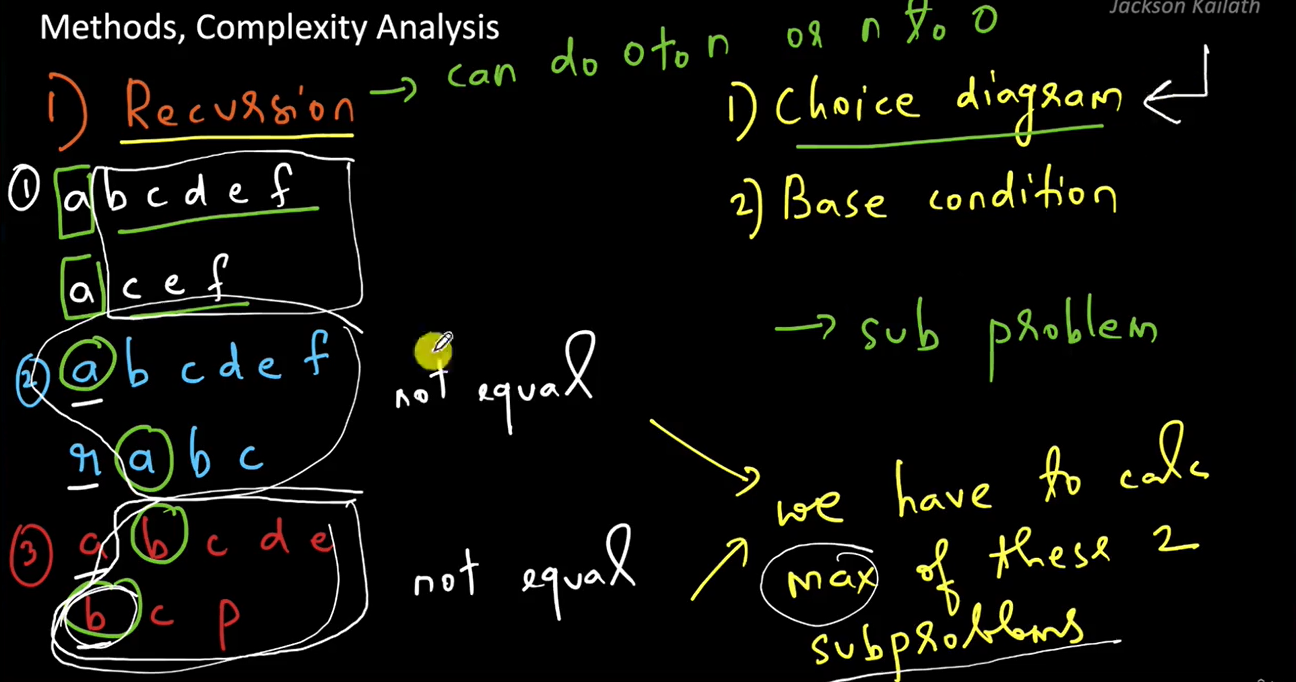 Jackson Kailath
Methods, Complexity Analysis
1) Recursion → can do 0 to n or n to 0
① a b c d e f
a c e f
② a b c d e f
r a b c
not equal
③ a b c d e
b c p
not equal
1) Choice diagram
2) Base condition
→ sub problem
we have to calc
max of these 2
subproblems